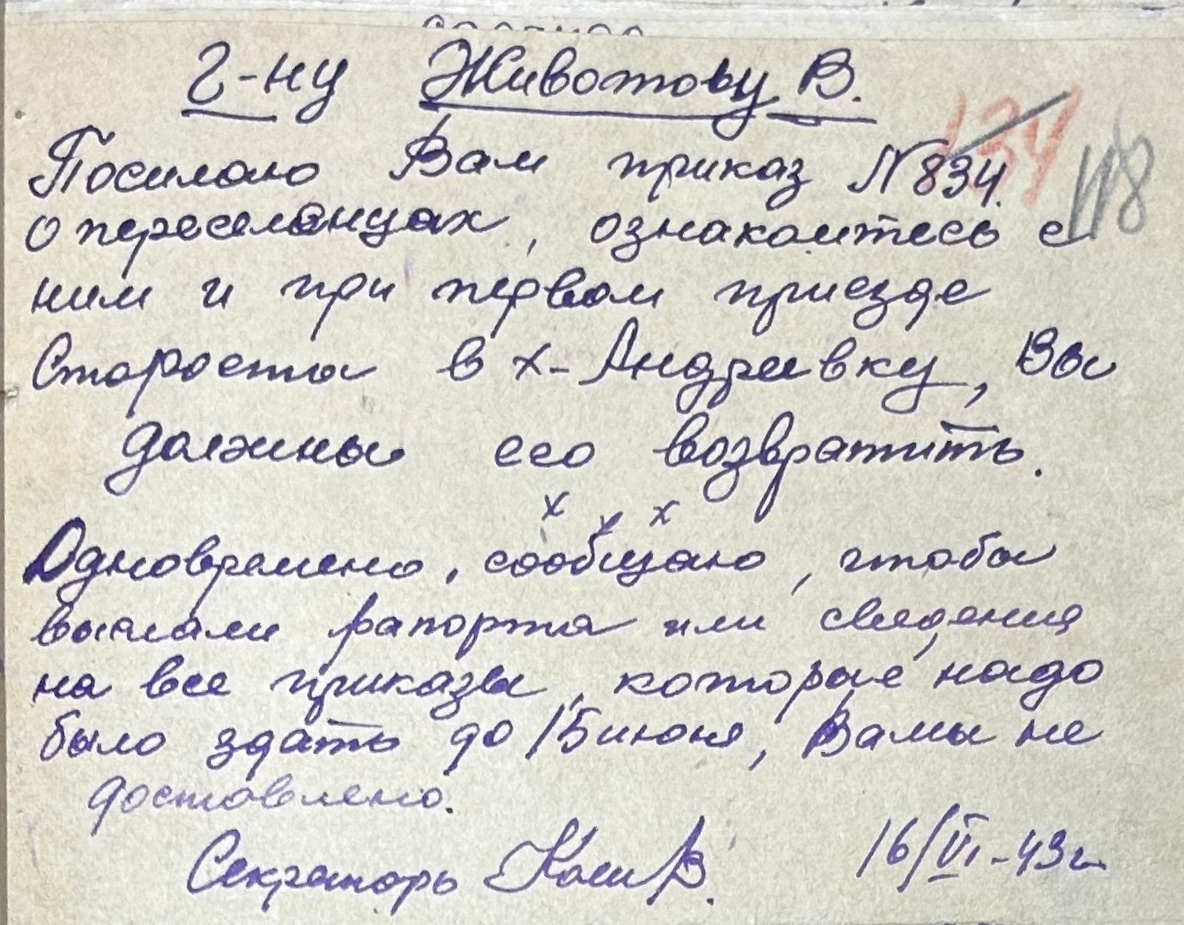 г-ну Животову В.
134
118
Посилаю Вам приказ №834.
о переселенцах, ознакомтесь с
ним и при первом приезде
Староста в х-Андреевку, Вы
должны его возвратить.
х х х
Одновремено, сообщаю, чтобы
выслали рапорта или сведения
на все приказы, которые надо
было здать до 15 июня, Вамы не
доставлено.
Секретарь В. 16/VI-43г.